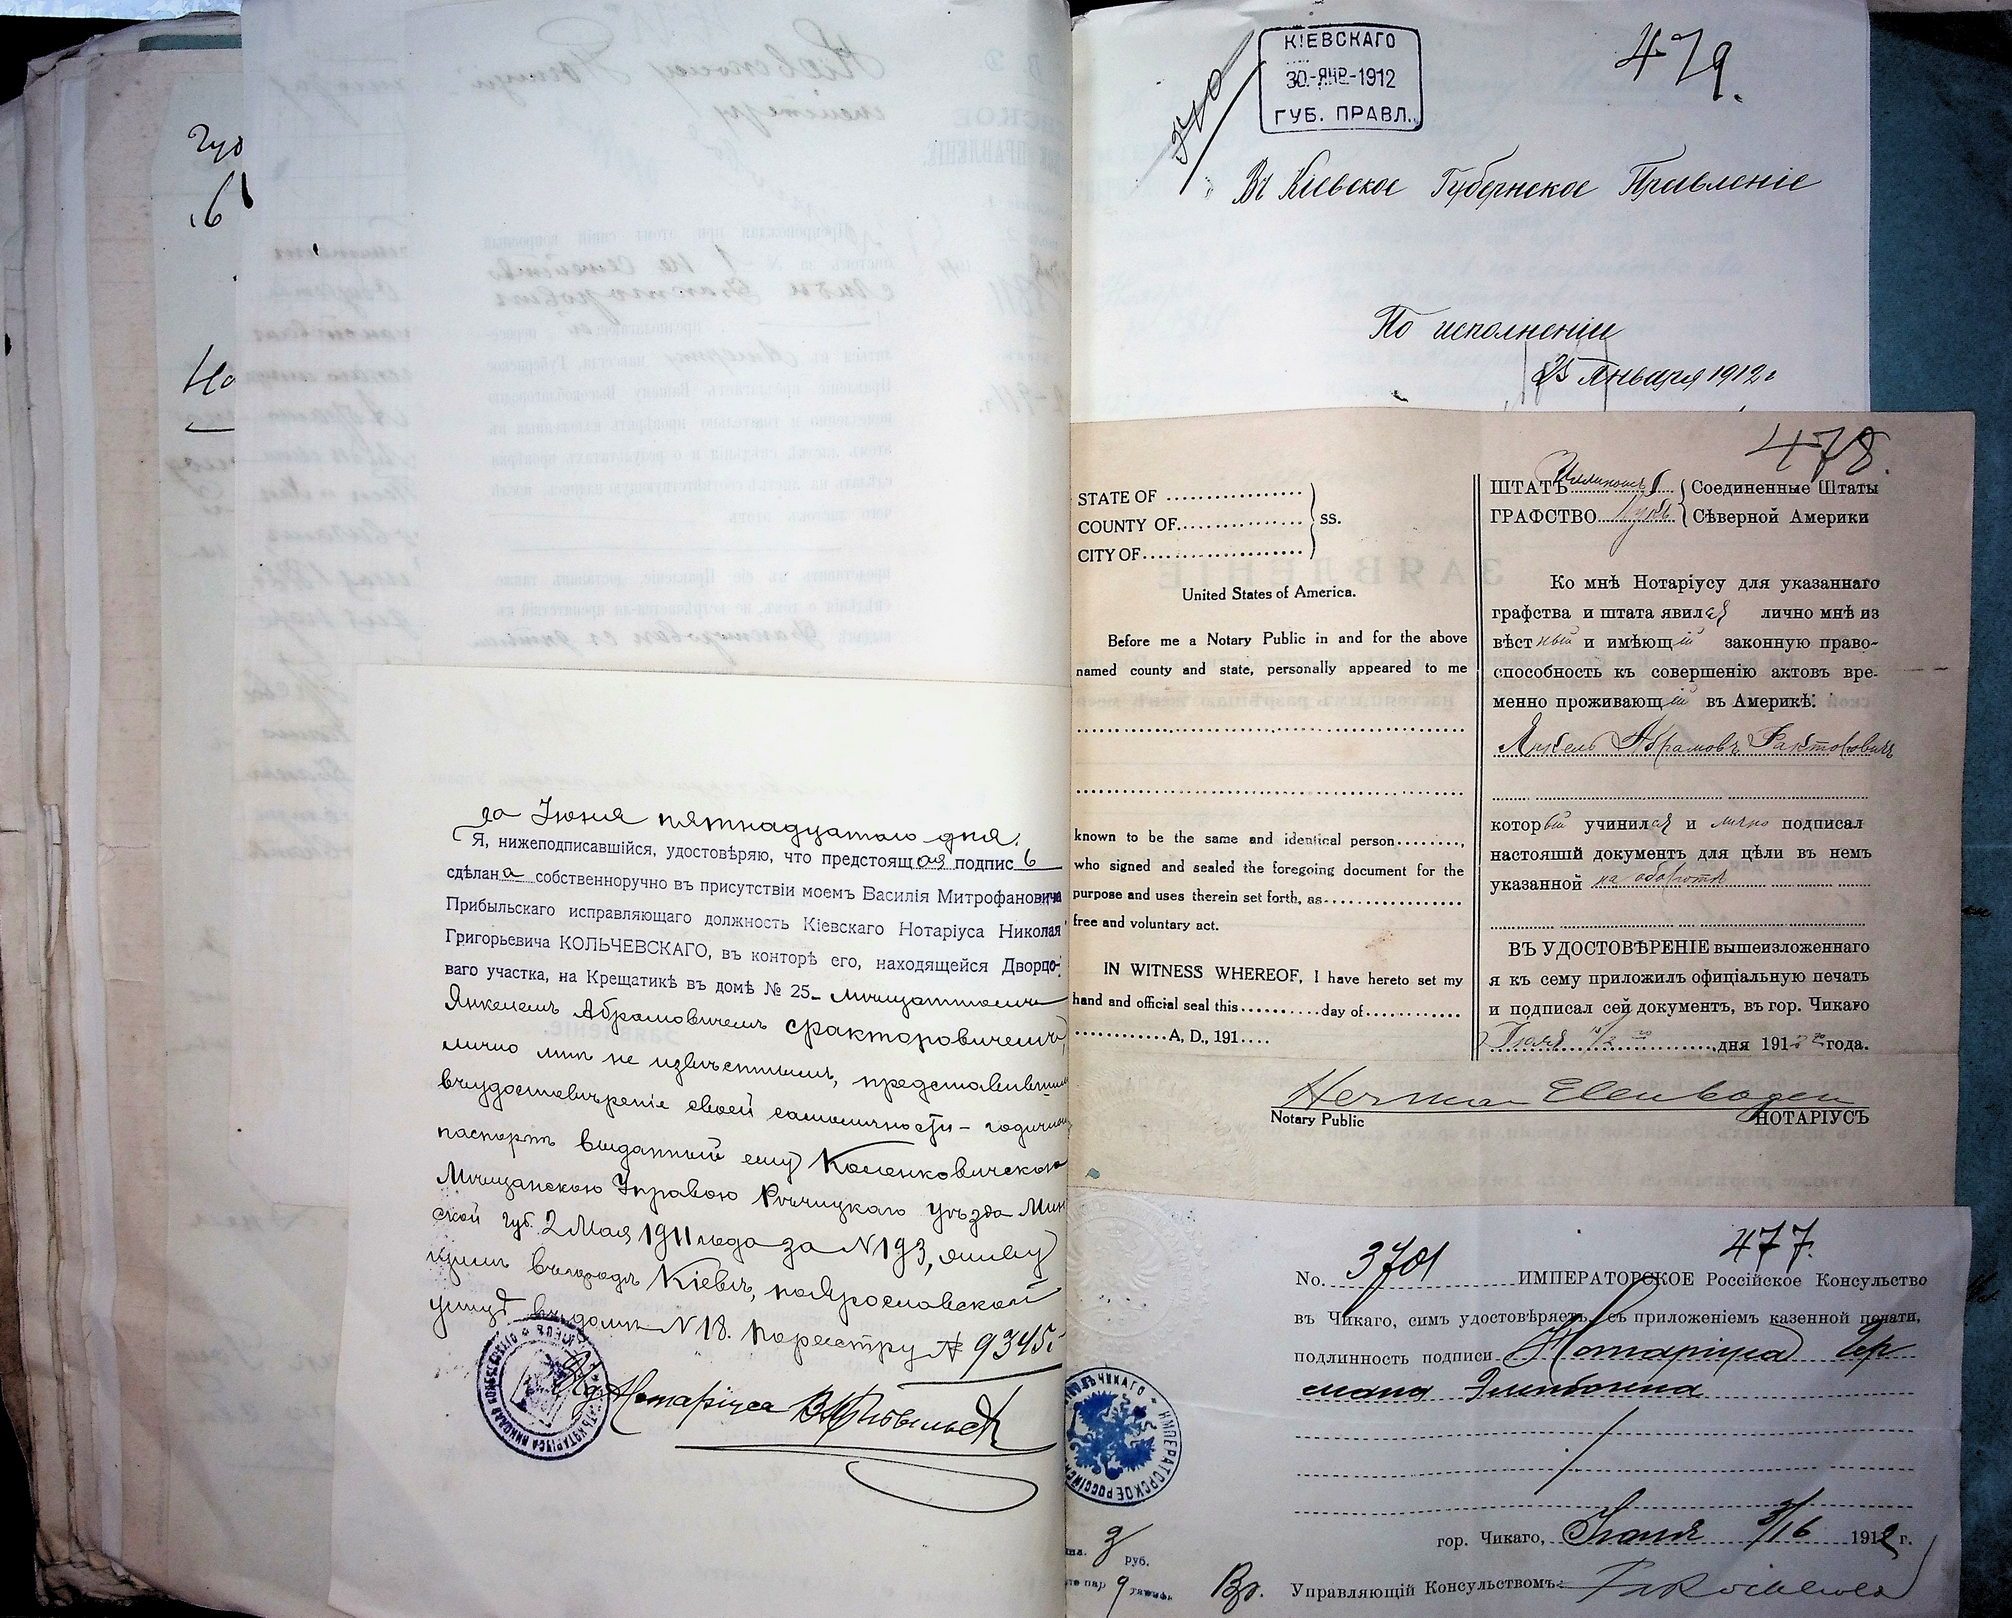 за Іюня пятнадцатаго дня.
Я, нижеподписавшійся, удостовѣряю, что предстоящая подпись
сдѣлана собственноручно въ присутствіи моемъ Василія Митрофановича
Прибыльскаго исправляющаго должность Кіевскаго Нотаріуса Николая
Григорьевича КОЛЬЧЕВСКАГО, въ конторѣ его, находящейся Дворцо-
ваго участка, на Крещатикѣ въ домѣ № 25 мѣщаниномъ
Янкелемъ Абрамовичемъ Факторовичемъ,
лично мнѣ не извѣстнымъ, представившимъ
въ удостовѣреніе своей самоличности - годичный
паспортъ выданный ему Коленковическою
Мѣщанскою Управою Рѣчицкаго уѣзда Мин
ской губ. 2 Мая 1911 года за N 193, живу
щимъ въ городѣ Кіевѣ, по Ярославской
улицѣ въ домѣ N 18. По реестру № 9345.
Нотаріуса
КІЕВСКАГО
30-ЯНВ-1912
ГУБ. ПРАВЛ.
479.
Въ Кіевское Губернское Правленіе
По исполненіи
25 Января 1912 г
478.
STATE OF
COUNTY OF
CITY OF
ss.
United States of America.
Before me a Notary Public in and for the above
named county and state, personally appeared to me
known to be the same and identical person........,
who signed and sealed the foregoing document for the
purpose and uses therein set forth, as
free and voluntary act.
IN WITNESS WHEREOF, I have hereto set my
hand and official seal this..........day of
............A, D., 191....
ШТАТЪ Иллиноисъ Соединенные Штаты
ГРАФСТВО Кукъ Сѣверной Америки
Ко мнѣ Нотаріусу для указаннаго
графства и штата явился лично мнѣ из
вѣстный и имѣющій законную право-
способность къ совершенію актовъ вре-
менно проживающій въ Америкѣ:
Янкель Абрамовъ Факторовичъ
который учинился и лично подписал
настоящій документъ для цѣли въ немъ
указанной на оборотѣ
ВЪ УДОСТОВѢРЕНІЕ вышеизложеннаго
я къ сему приложилъ офиціальную печать
и подписал сей документъ, въ гор. Чикаго
дня 191 года.
Herman Elenbogen
Notary Public НОТАРІУСЪ
477.
No. 3701 ИМПЕРАТОРСКОЕ Россійское Консульство
въ Чикаго, симъ удостовѣряетъ, съ приложеніемъ казенной печати,
подлинность подписи Нотаріуса Гер
мана Эленбогена
гор. Чикаго, 3/16 1912 г.
руб.
Вр. Управляющій Консульствомъ: